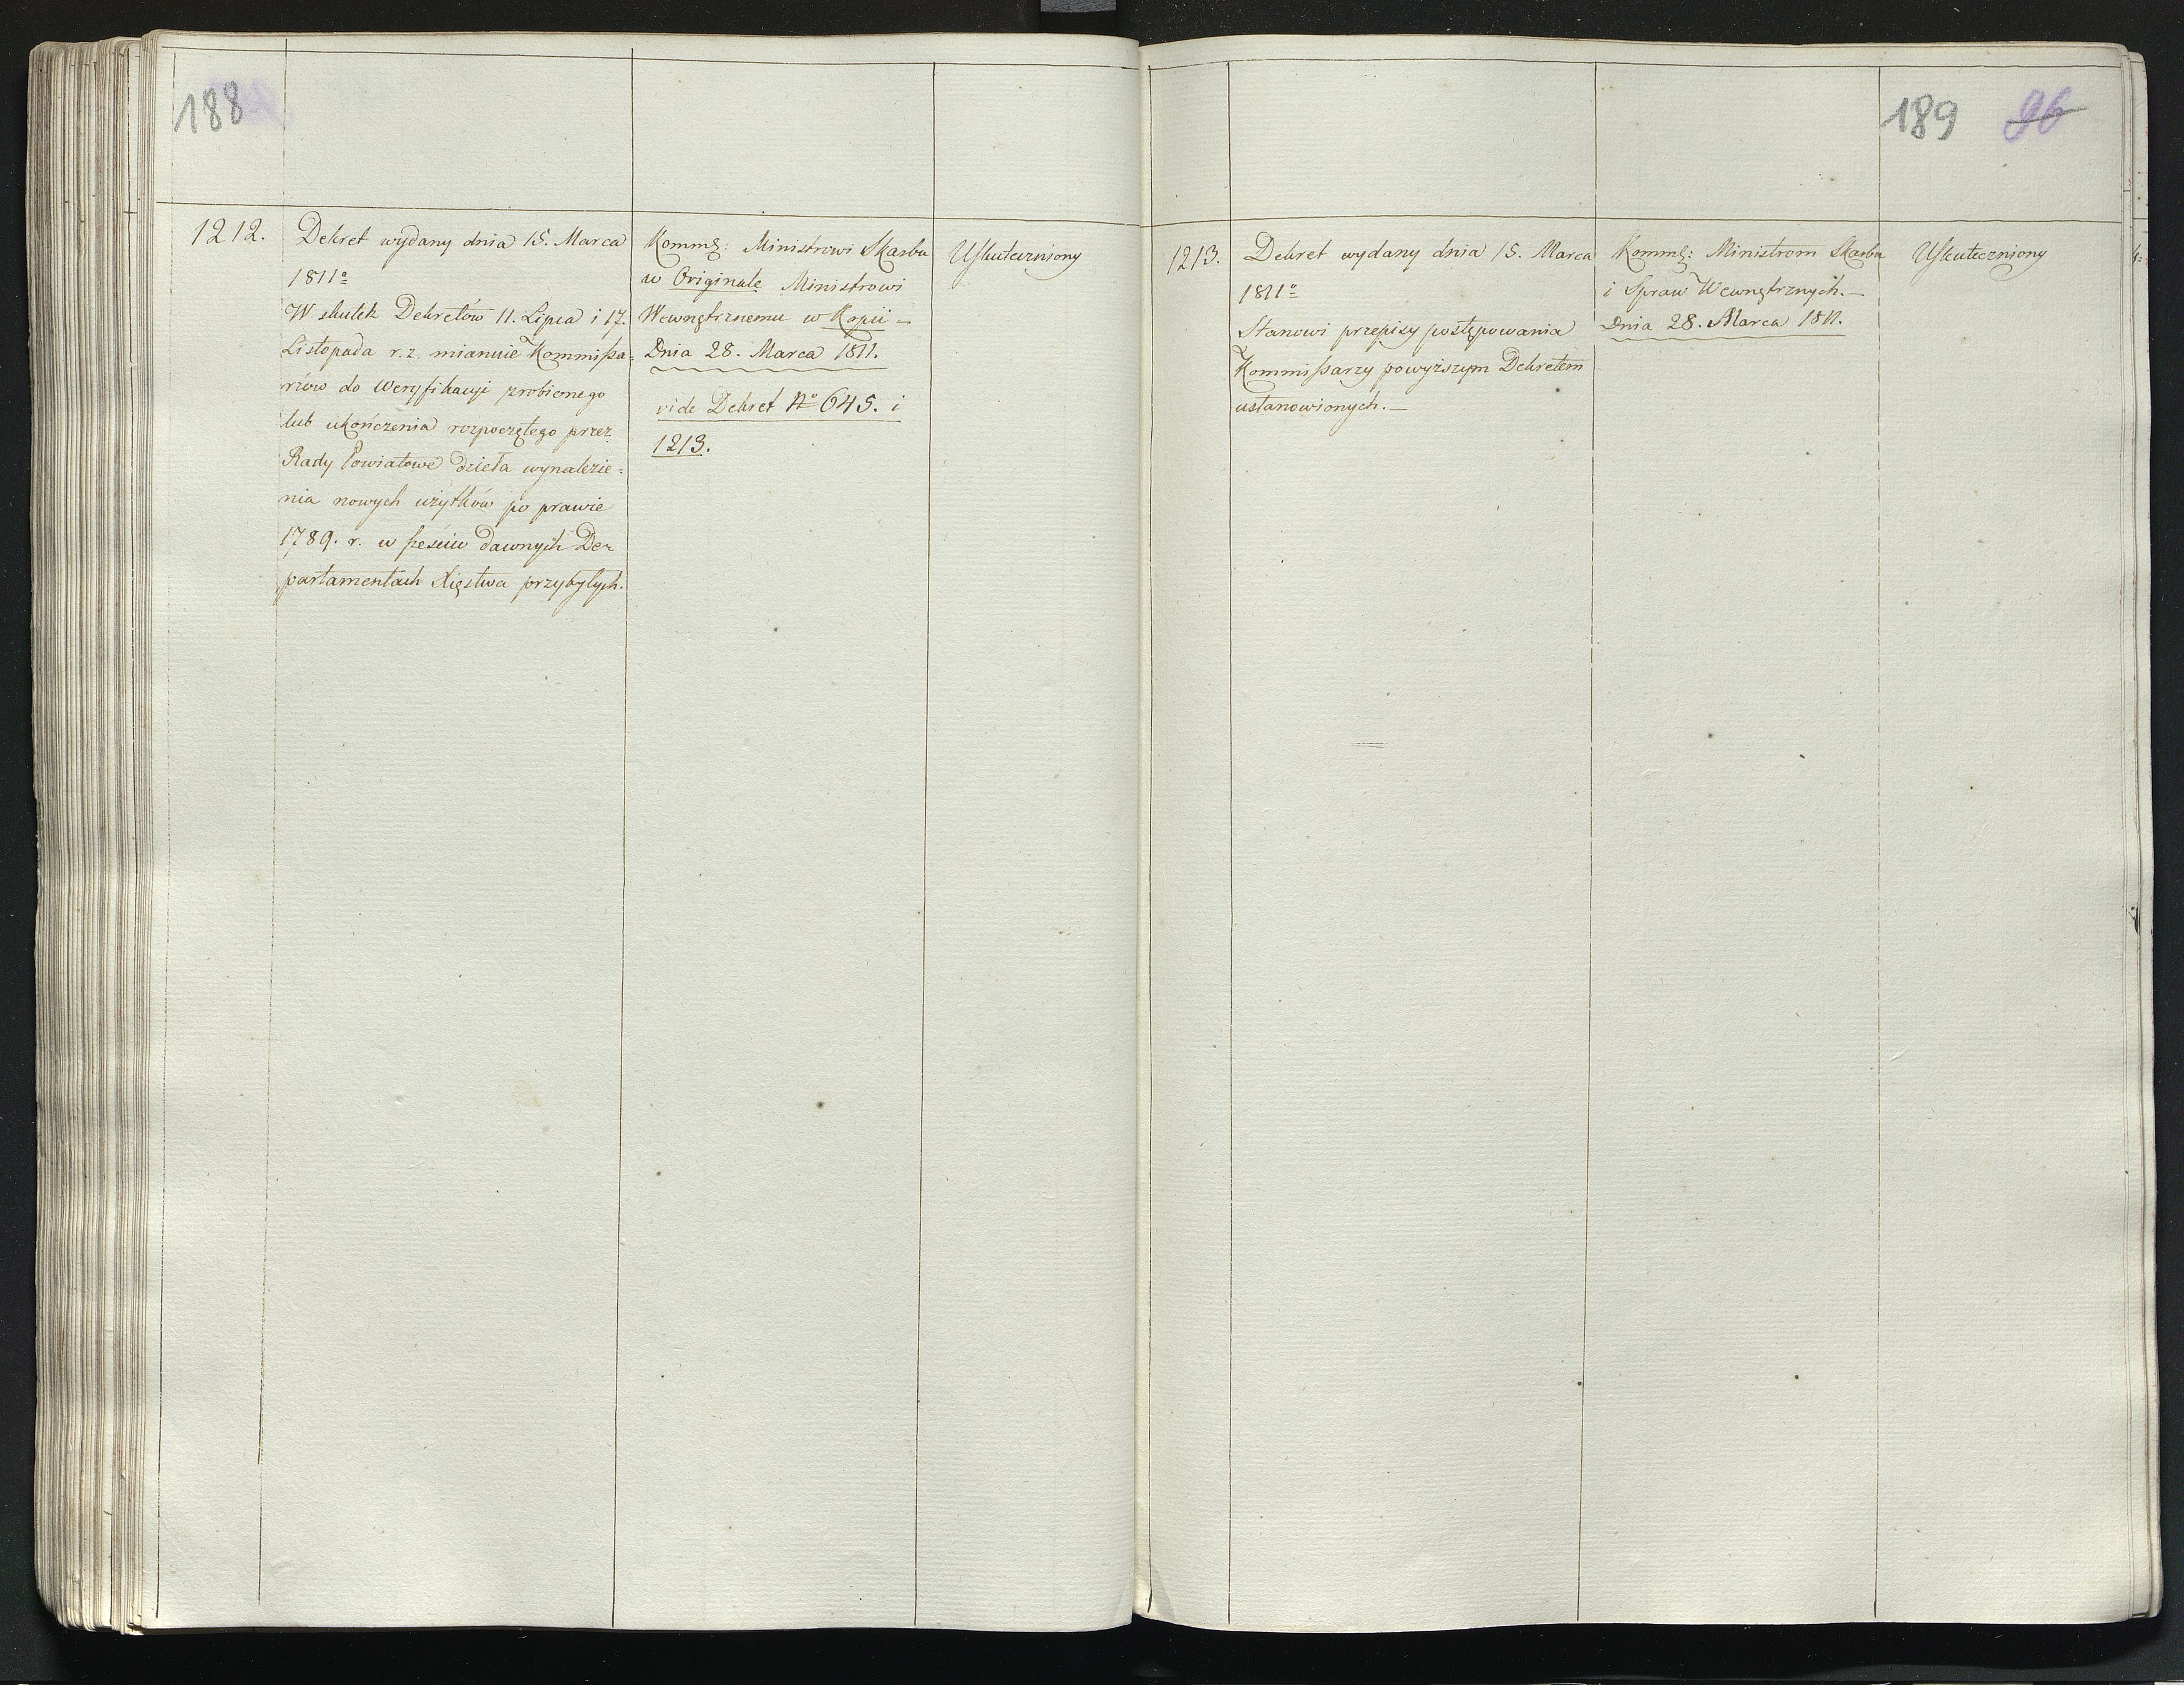 188
1212.
Dekret wydany dnia 15. Marca
1811º
W skutek Dekretów 11. Lipca i 17.
Listopada r. z. mianuie Kommißa=
rzów do Weryfikacyi zrobionego
lub ukończenia rozpoczętego przez
Rady Powiatowe dzieła wynalezie=
nia nowych użytków po prawie
1789. r. w sześciu dawnych De=
partamentach Xięstwa przybyłych.
Ministrowi Skarbu
w Originale Ministrowi
Wewnętrznemu w Kopii –
Dnia 28. Marca 1811.
vide Dekret Nº 645. i
1213.
Uskuteczniony
189 96
1213.
Dekret wydany dnia 15. Marca
1811º
Stanowi przepisy postępowania
Kommißarzy powyższym Dekretem
ustanowionych. –
Ministrom Skarbu
i Spraw Wewnętrznych. –
Dnia 28. Marca 1811.
Uskuteczniony